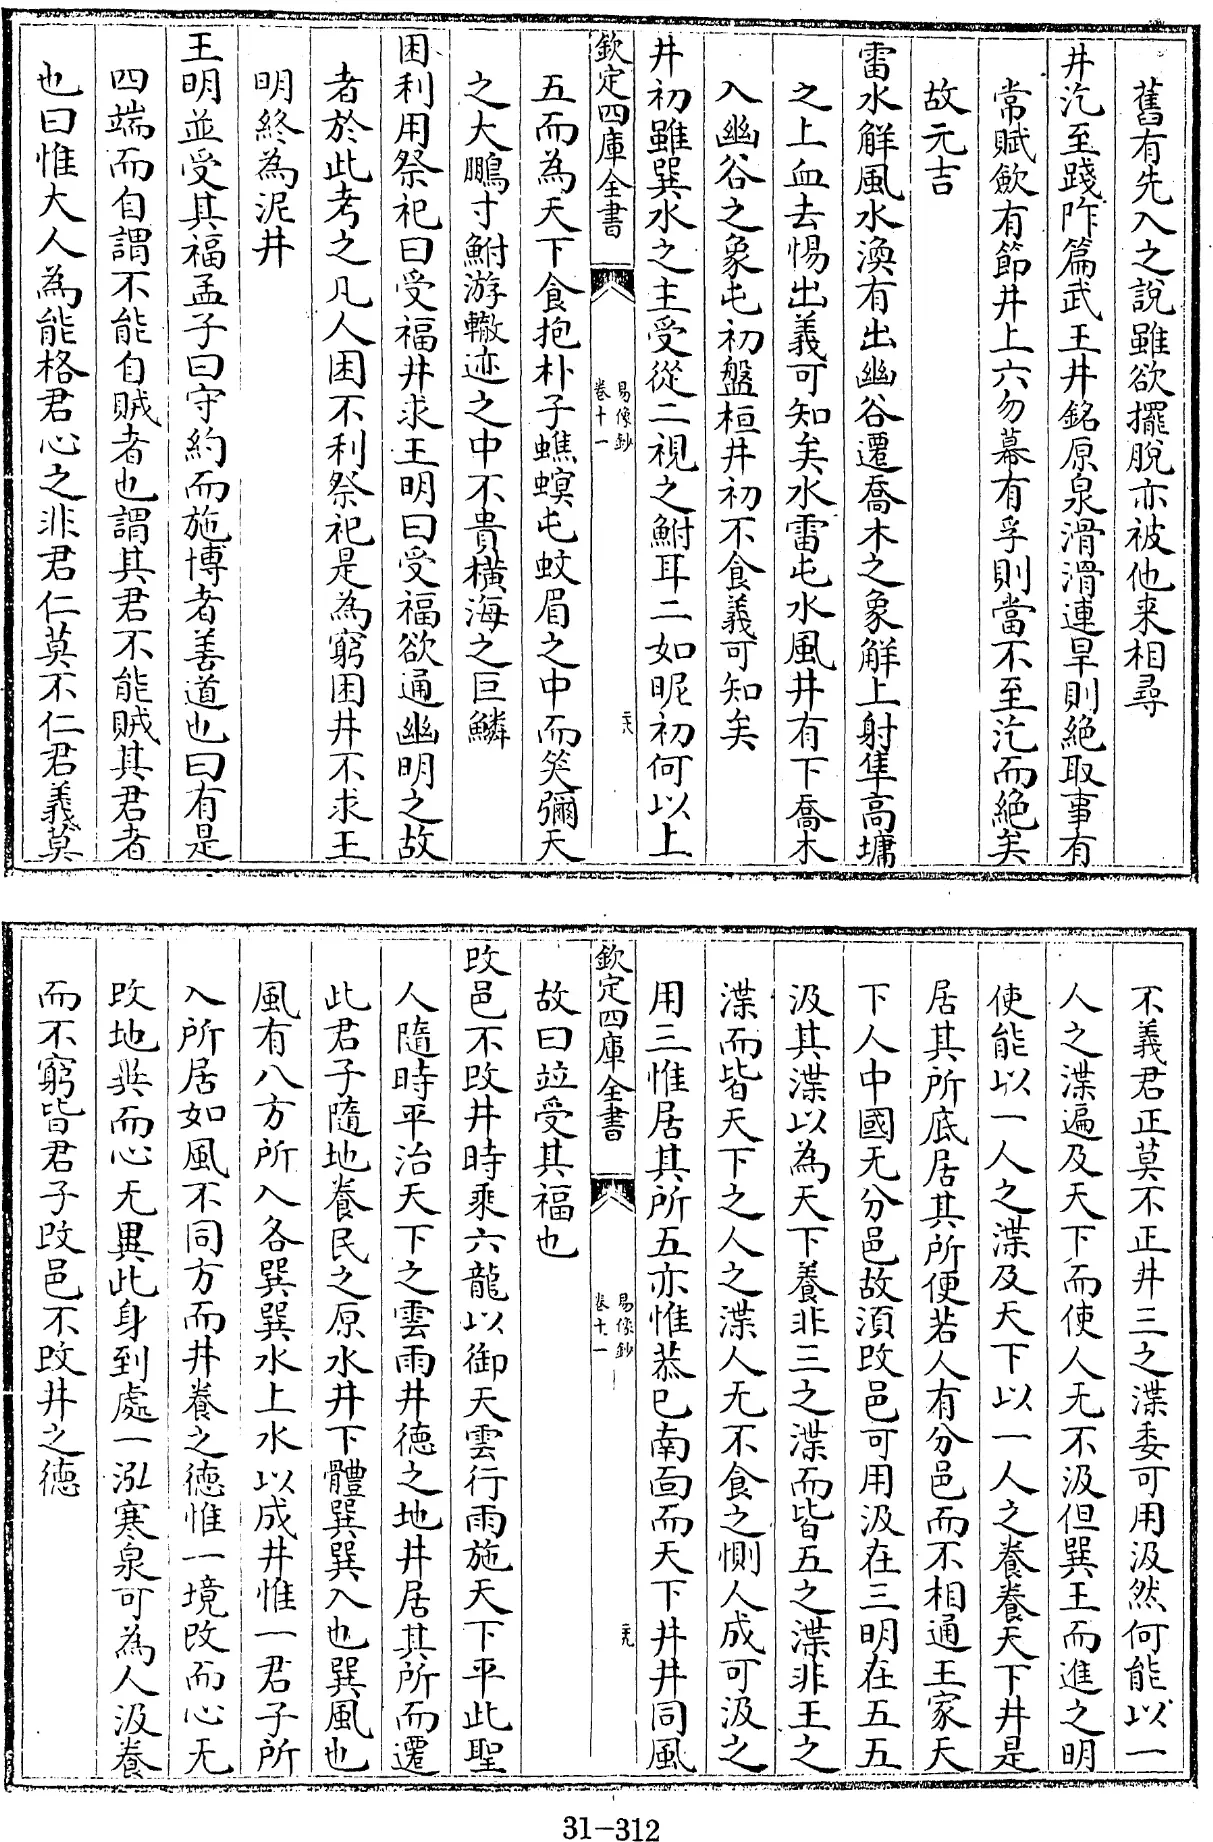 舊有先入之說雖欲擺脫亦被他来相尋
井汔至踐阼篇武王井銘原泉滑滑連旱則絶取事有
常賦歛有節井上六勿幕有孚則當不至汔而絶矣
故元吉
雷水解風水渙有出幽谷遷喬木之象解上射隼高墉
之上血去惕出義可知矣水雷屯水風井有下喬木
入幽谷之象屯初盤桓井初不食義可知矣
井初雖巽水之主受從二視之鮒耳二如昵初何以上
欽定四庫全書
易像鈔
卷十一
二十八
五而為天下食抱朴子蟭螟屯蚊眉之中而笑彌天
之大鵬寸鮒游轍迹之中不貴橫海之巨鱗
困利用祭祀曰受福井求王明曰受福欲通幽明之故
者於此考之凡人困不利祭祀是為窮困井不求王
明終為泥井
王明並受其福孟子曰守約而施博者善道也曰有是
四端而自謂不能自賊者也謂其君不能賊其君者
也曰惟大人為能格君心之非君仁莫不仁君義莫
不義君正莫不正井三之渫委可用汲然何能以一
人之渫遍及天下而使人无不汲但巽王而進之明
使能以一人之渫及天下以一人之養養天下井是
居其所底居其所便若人有分邑而不相通王家天
下人中國无分邑故須改邑可用汲在三明在五五
汲其渫以為天下養非三之渫而皆五之渫非王之
渫而皆天下之人之渫人无不食之惻人成可汲之
用三惟居其所五亦惟恭已南面而天下井井同風
欽定四庫全書
易像鈔
卷十一
二十九
故曰竝受其福也
改邑不改井時乘六龍以御天雲行雨施天下平此聖
人隨時平治天下之雲雨井德之地井居其所而遷
此君子隨地養民之原水井下體巽巽入也巽風也
風有八方所入各巽巽水上水以成井惟一君子所
入所居如風不同方而井養之德惟一境改而心无
改地異而心无異此身到處一泓寒泉可為人汲養
而不窮皆君子改邑不改井之德
31-312